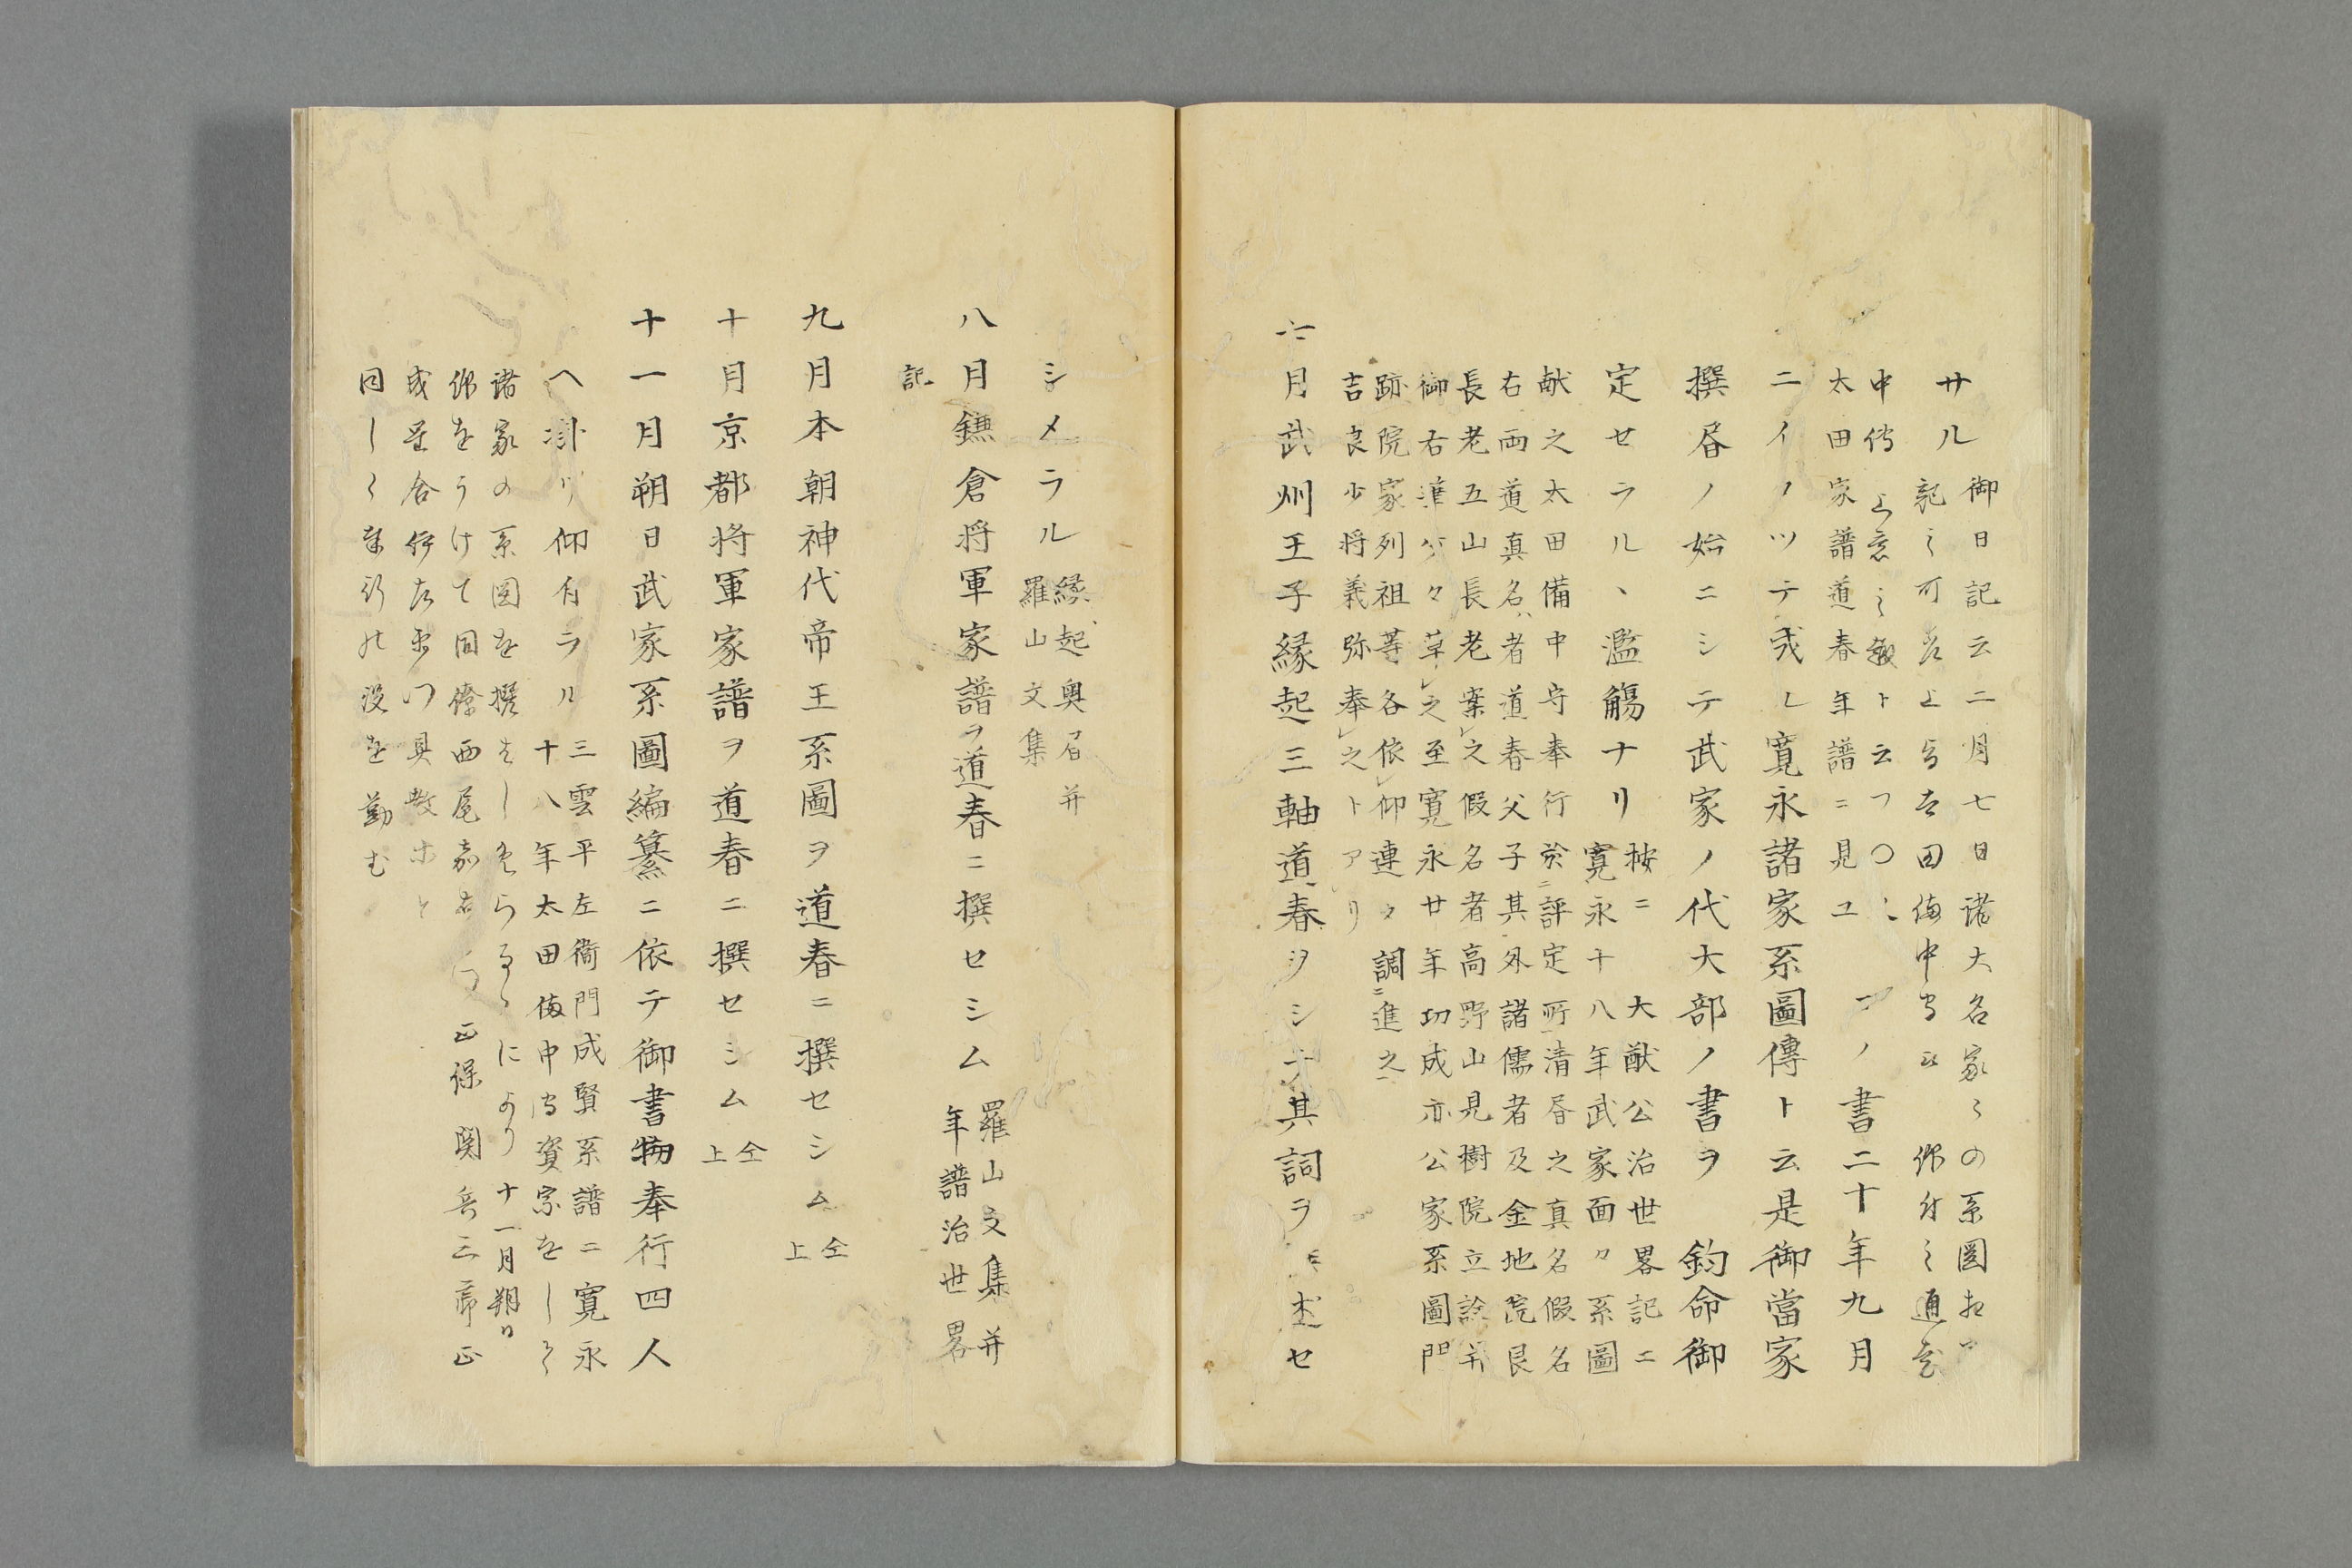 サル
御日記云二月七日諸大名家〻の系圖
記之可
太田備中守
中傳 上意之趣ト云フ〇
太田家譜道春年譜ニ見ユ
コノ書二十年九月
ニイタツテ成し寛永諸家系圖傳ト云是御當家
撰㫺ノ始ニシテ武家ノ代大部ノ書ヲ 鈞命御
定セラルヽ濫觴ナリ
按ニ 大猷公治世畧記ニ
寛永十八年武家面々系圖
献之太田備中守奉行於評定所清㫺之真名假名
右両道真名者道春父子其外諸儒者及金地院艮
長老五山長老案之假名者高野山見樹院立詮并
御右筆等々草之至寛永廿年功成亦公家系圖門
跡院家列祖等各依仰連々調進之
吉良少将義弥奉之トアリ
七月武州王子縁起三軸道春ヲシテ其詞ヲ述セ
シメラル
縁起奥㫺并
羅山文集
八月鎌倉将軍家譜ヲ道春ニ撰セシム
羅山文集并
年譜治世畧
記
九月本朝神代帝王系圖ヲ道春ニ撰セシム
仝
上
十月京都将軍家譜ヲ道春ニ撰セシム
仝
上
十一月朔日武家系圖編纂ニ依テ御書物奉行四人
ヘ掛リ仰付ラル
三雲平左衛門成賢系譜ニ寛永
十八年太田備中守資宗をして
諸家の系圖を撰せしめらるゝにより十一月朔日
仰をうけて同僚西尾嘉右衛門正保関兵三郎正
成星合伊左衛門具教等と
同しく其事の役を勤む